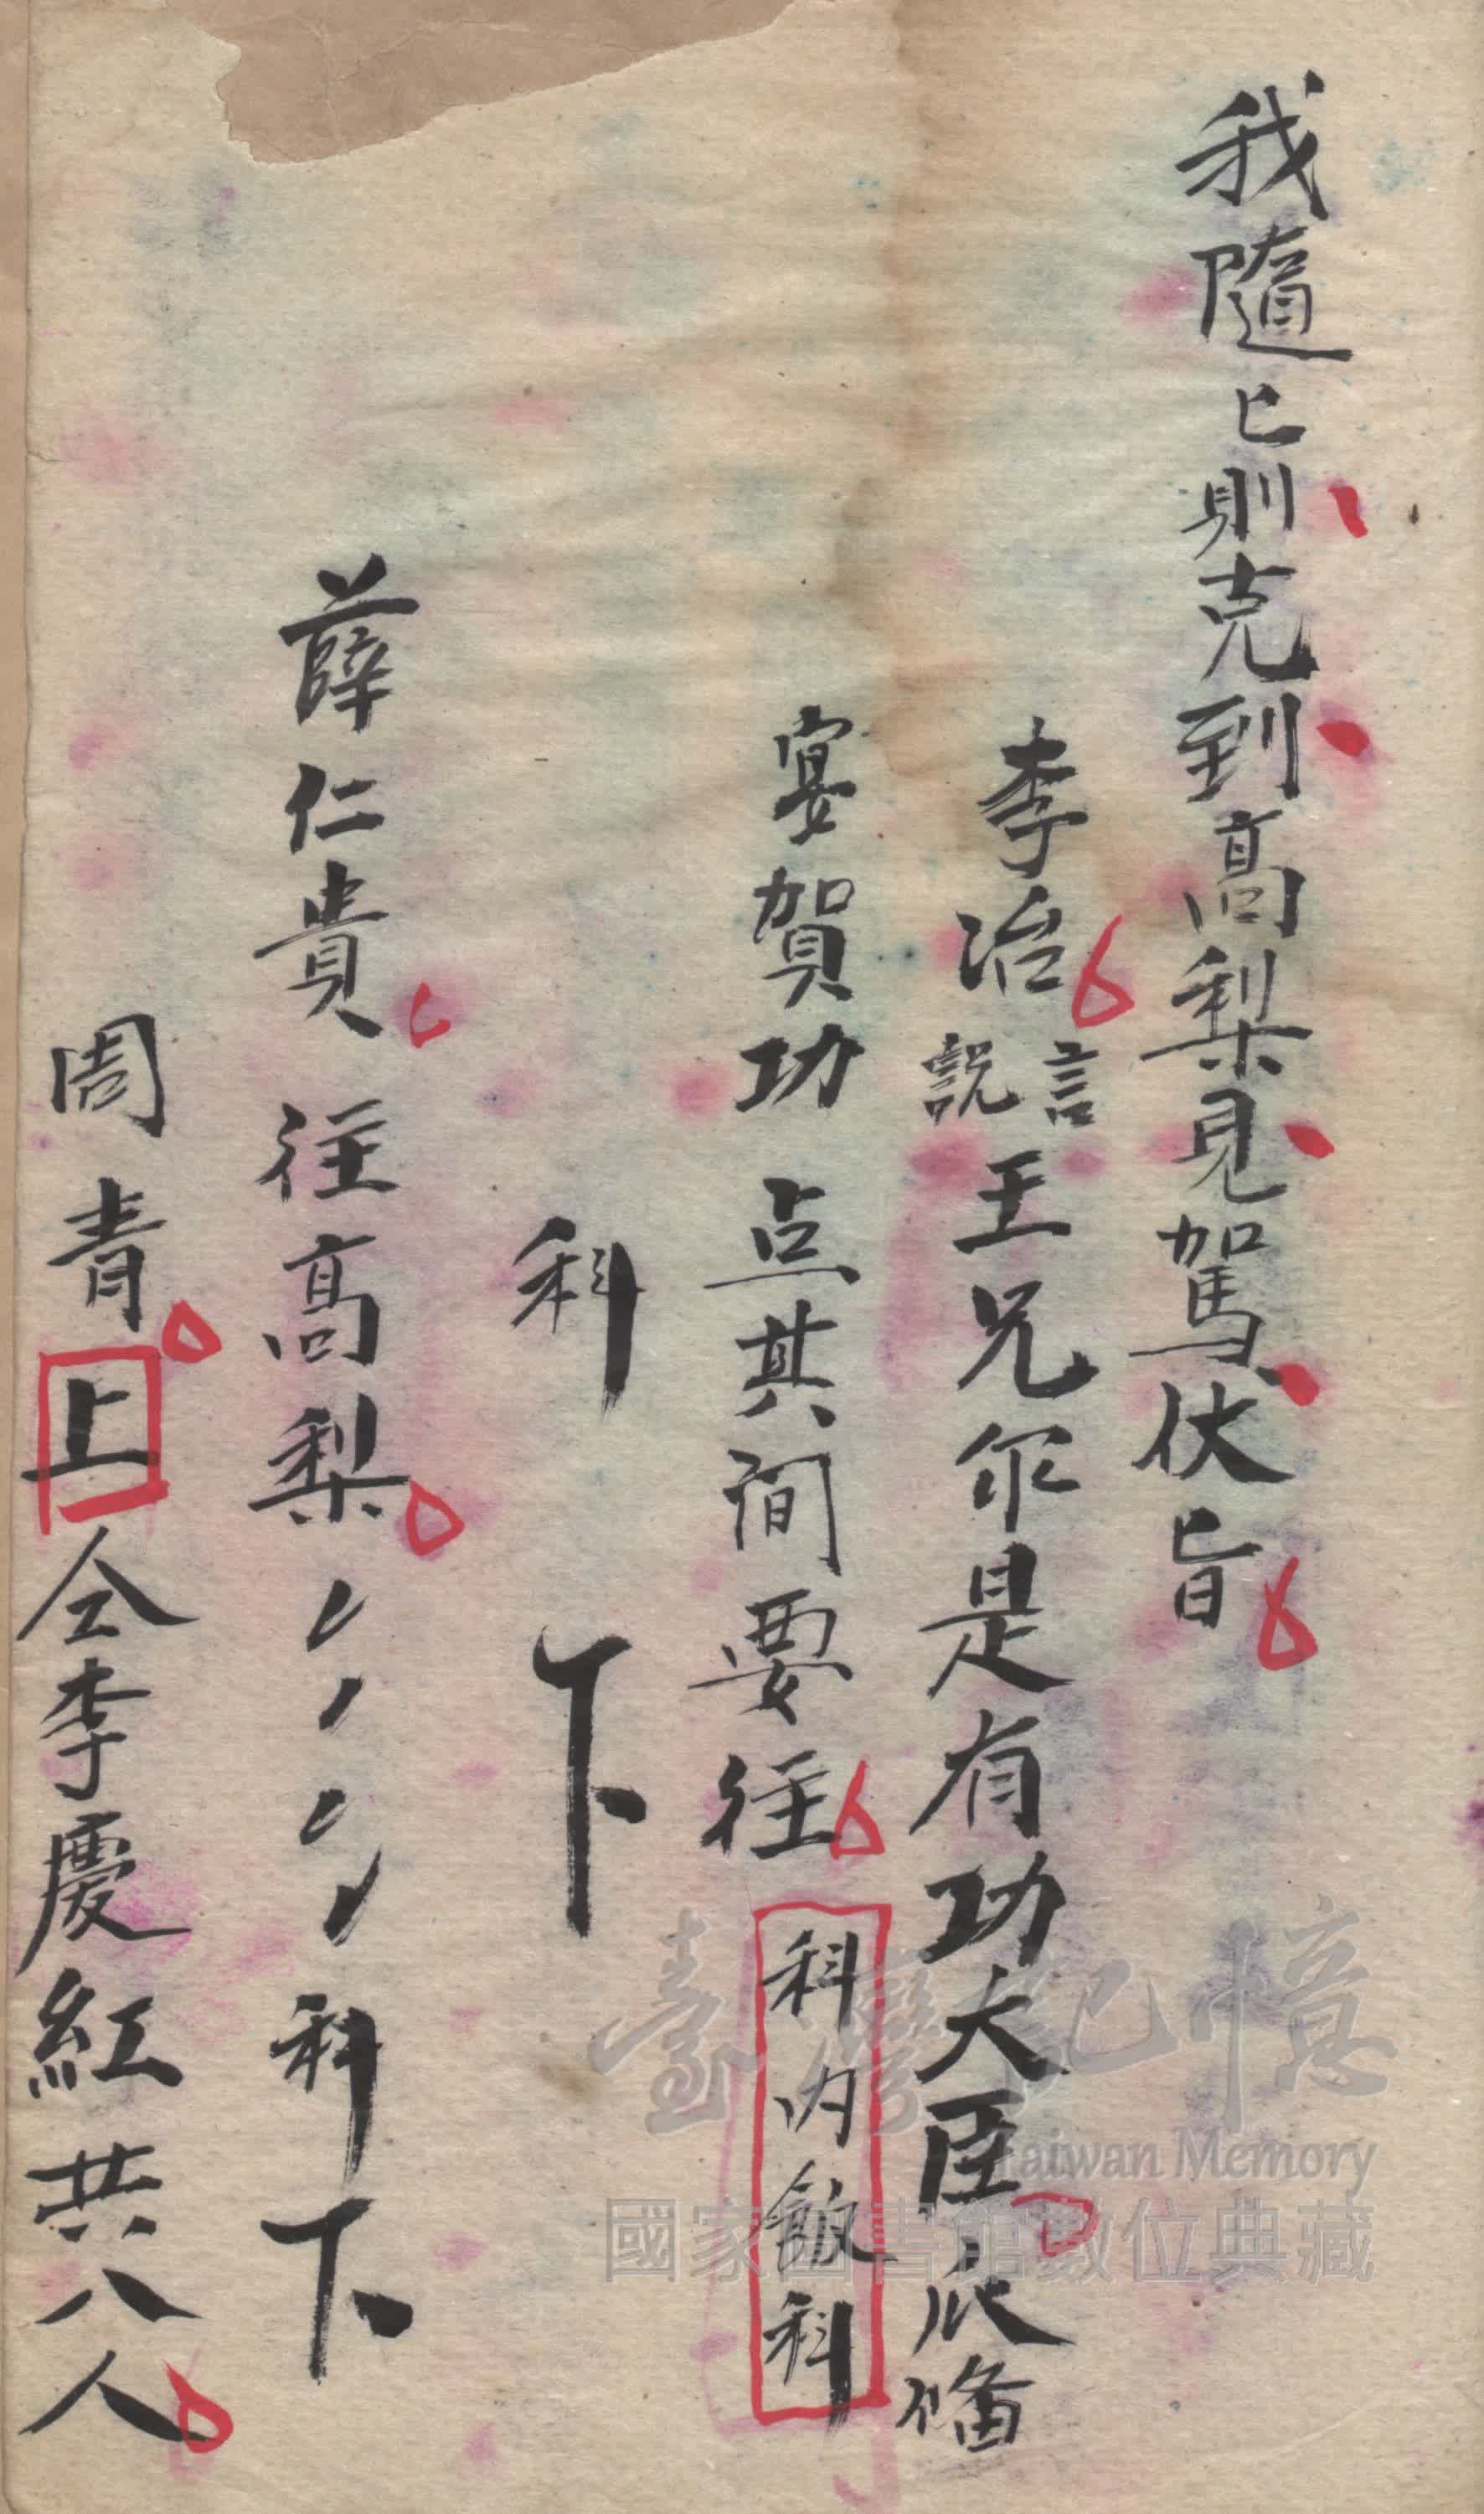 我隨匕則克到高梨見駕伏旨
李治言説王兄尔是有功大臣俻
宴賀功 点其间要往 科内飲科
科 下
薛仁貴 往高梨 科下
周青上仝李慶紅共八人
臺灣記憶
Taiwan Memory
國家圖書館數位典藏